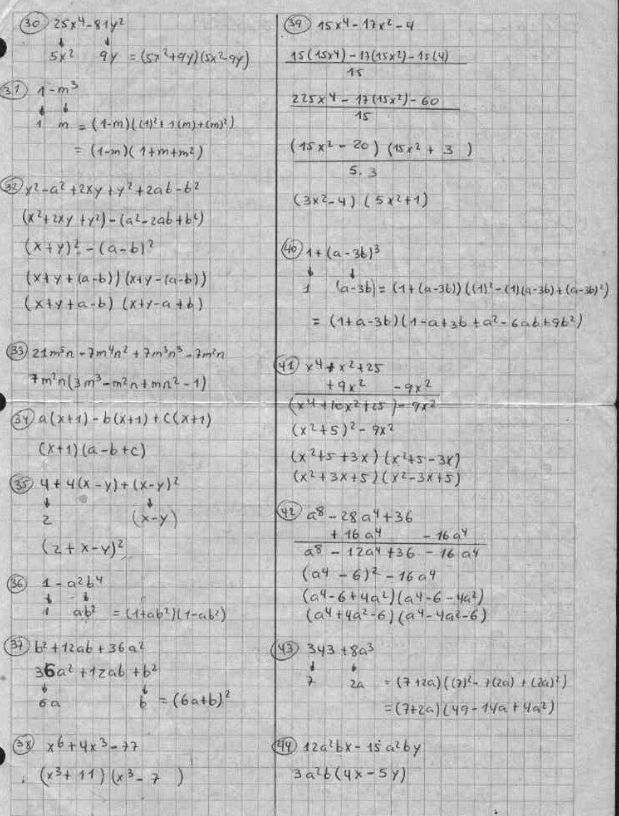 30 25x⁴-81y²
5x² 9y =(5x²+9y)(5x²-9y)
31 1-m³
1 m =(1-m)((1)²+1(m)+(m)²)
=(1-m)(1+m+m²)
32 y²-a²+2xy+y²+2ab-b²
(x²+2xy+y²)-(a²-2ab+b²)
(x+y)²-(a-b)²
(x+y+(a-b))(x+y-(a-b))
(x+y+a-b)(x+y-a+b)
33 21m⁵n-7m⁴n²+7m³n³-7m²n
7m²n(3m³-m²n+mn²-1)
34 a(x+1)-b(x+1)+c(x+1)
(x+1)(a-b+c)
35 4+4(x-y)+(x-y)²
2 (x-y)
(2+x-y)²
36 1-a²b⁴
1 ab² =(1+ab²)(1-ab²)
37 b²+12ab+36a²
36a²+12ab+b²
6a b =(6a+b)²
38 x⁶+4x³-77
(x³+11)(x³-7 )
39 15x⁴-17x²-4
15(15x⁴)-17(15x²)-15(4)
15
225x⁴-17(15x²)-60
15
(15x²-20)(15x²+3)
5.3
(3x²-4)(5x²+1)
40 1+(a-3b)³
1 (a-3b)=(1+(a-3b))((1)²-(1)(a-3b)+(a-3b)²)
=(1+a-3b)(1-a+3b+a²-6ab+9b²)
41 x⁴+x²+25
+9x² -9x²
(x⁴+10x²+25)-9x²
(x²+5)²-9x²
(x²+5+3x)(x²+5-3x)
(x²+3x+5)(x²-3x+5)
42 a⁸-28a⁴+36
+16a⁴ -16a⁴
a⁸-12a⁴+36-16a⁴
(a⁴-6)²-16a⁴
(a⁴-6+4a²)(a⁴-6-4a²)
(a⁴+4a²-6)(a⁴-4a²-6)
43 343+8a³
7 2a =(7+2a)((7)²-+(2a)+(2a)²)
=(7+2a)(49-14a+4a²)
44 12a²bx-15a²by
3a²b(4x-5y)